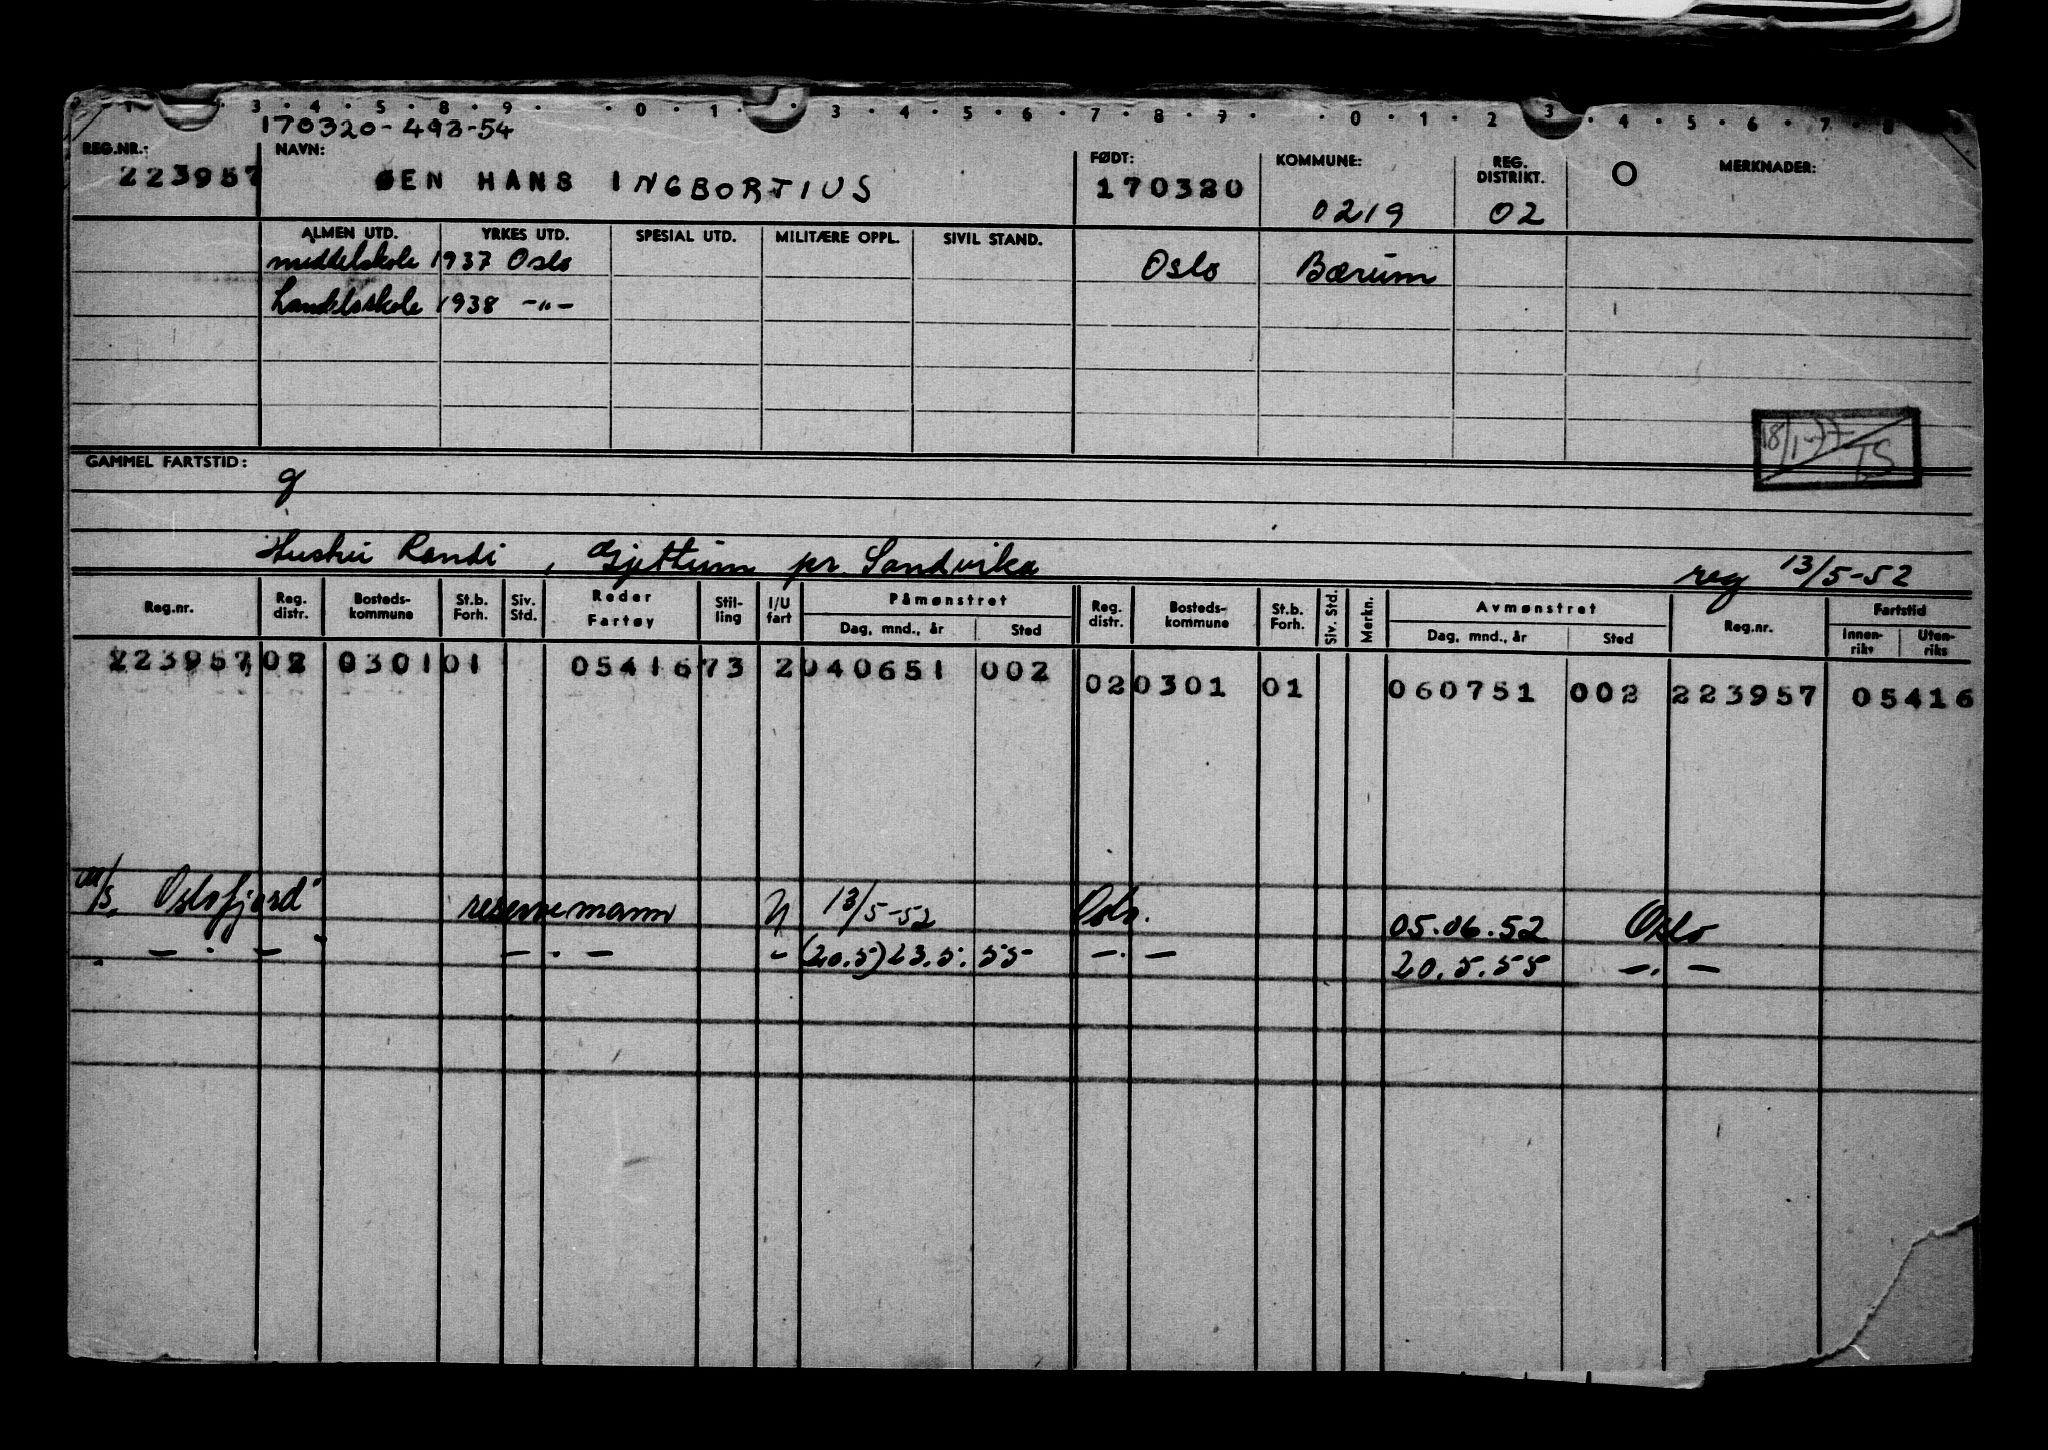 3 4 5 8 9 0 1 3 4 5 6 7 8 9 0 1 2 3 4 5 6 7 8
170320-493-54
REG.NR.: NAVN: FØDT: KOMMUNE: REG. DISTRIKT. O MERKNADER:
223957 ØEN HANS INGBORTIUS 170320 0219 02
ALMEN UTD. YRKES UTD. SPESIAL UTD. MILITÆRE OPPL. SIVIL STAND.
middelskole 1937 Oslo Oslo Bærum
handelsskole 1938 -"-
18/1-77 TS
GAMMEL FARTSTID:
g
Hustru Randi, Gjettum pr. Sandvika reg 13/5-52
Reg.nr. Reg. distr. Bosteds-kommune St.b. Forh. Siv. Std. Reder Fartøy Stil-ling I/U fart Påmønstret Dag, mnd., år Sted Reg. distr. Bosteds-kommune St.b. Forh. Siv. Std. Merkn. Avmønstret Dag, mnd., år Sted Reg.nr. Fartstid Innen-riks Uten-riks
223957 02 0301 01 05416 73 2 040651 002 02 0301 01 060751 002 223957 05416
M/S. Oslofjord reservemann U 13/5-52 Oslo. 05.06.52 Oslo
- . - - . - - (20.5) 23.5.55 -.- 20.5.55 -.-